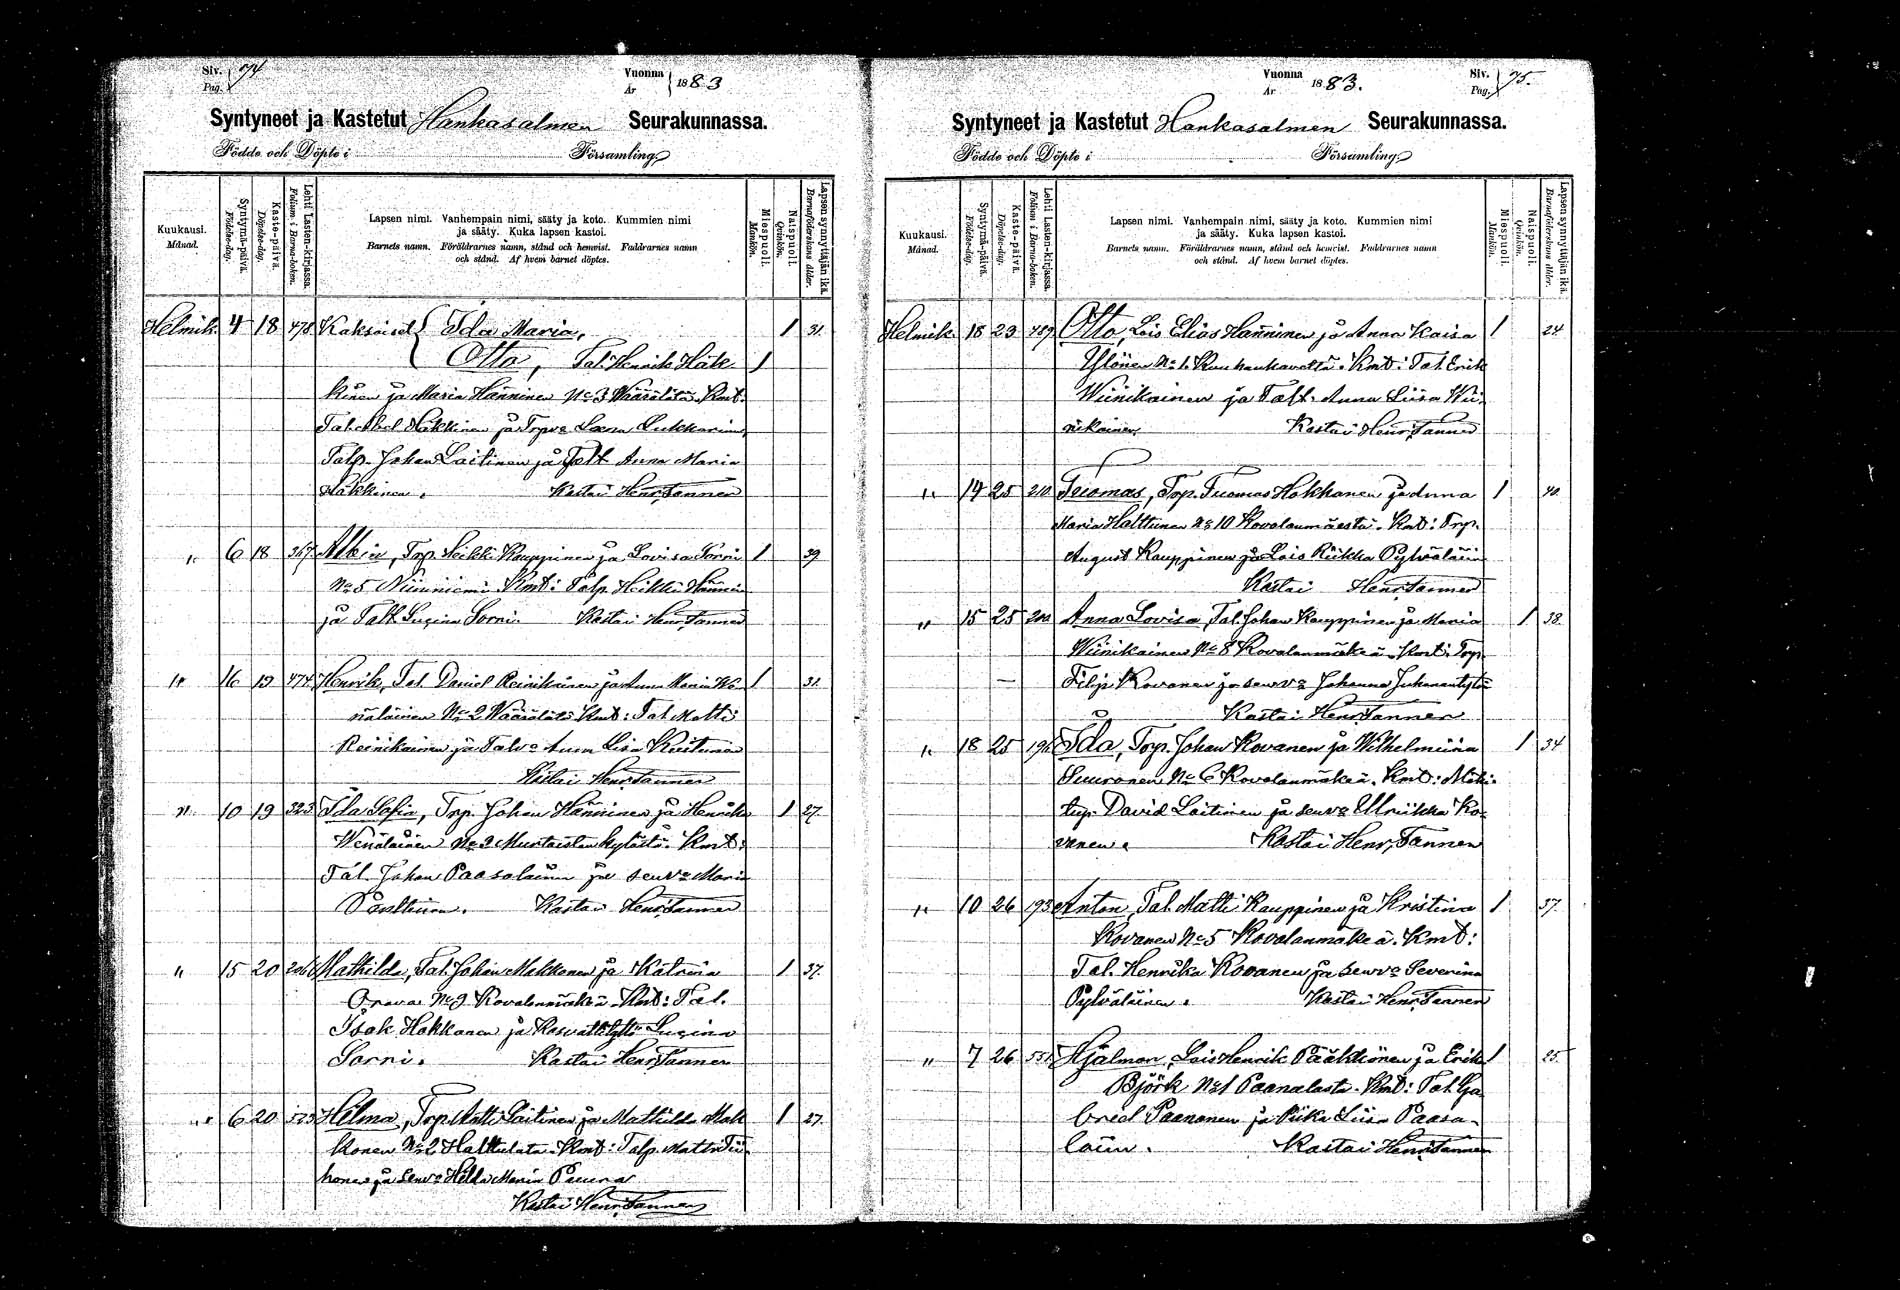 Siv. 74
Pag.
Vuonna 1883
År
Syntyneet ja Kastetut Hankasalmen Seurakunnassa.
Födde och Döpte i Församling
Kuukausi.
Månad.
Syntymä-päivä.
Födelse-dag.
Kaste-päivä.
Döpelse-dag.
Lehti Lasten-kirjassa.
Folium i Barna-boken.
Lapsen nimi. Vanhempain nimi, sääty ja koto. Kummien nimi
ja sääty. Kuka lapsen kastoi.
Barnets namn. Föräldrarnes namn, stånd och hemvist. Faddrarnes namn
och stånd. Af hvem barnet döptes.
Miespuoli.
Mankön.
Naispuoli.
Qvinkön.
Lapsen synnyttäjän ikä.
Barnaföderskans ålder.
Helmik. 4 18 478 Kaksoiset Ida Maria, 1 31.
Otto, Tal. Henrik Häk- 1
kinen ja Maria Hänninen No 3 Wäärälästä. Kmt:
Tal. Abel Häkkinen ja Trpva Leena Lukkarinen,
Talp. Johan Laitinen ja Talt. Anna Maria
Häkkinen. Kastoi Henr. Tanner
" 6 18 367. Albin, Trp. Heikki Kauppinen ja Lovisa Sorri 1 39
No 5 Niininiemi. Kmt: Talp. Heikki Hänninen
ja Talt. Lugina Sorri. Kastoi Henr. Tanner
" 16 19 474. Henrik, Tal. Daniel Reinikainen ja Anna Maria We- 1 31.
näläinen No 2 Wäärälästä Kmt: Tal. Matti
Reinikainen ja Talva Anna Lisa
Kastoi Henr. Tanner
" 10 19 323 Ida Sofia, Trp. Johan Hänninen ja Henrika 1 27.
Wenäläinen No 2 Murtoisten kylästä. Kmt:
Tal. Johan Paasolainen ja senva Maria
Kastoi Henr. Tanner
" 15 20 206 Mathilda, Tal. Johan Makkonen ja Katrina 1 37.
Orava No 9. Kovalanmäkeä. Kmt: Tal.
Isak Hokkanen ja Kasvattitytto Lugina
Sorri. Kastoi Henr. Tanner
" 6 20 523 Helma, Trp. Antti Laitinen ja Mathilda Mak- 1 27.
konen No 2 Halttulata. Kmt: Talp. Matti Tii-
honen ja senva Hilda Maria Puura
Kastoi Henr. Tanner
Vuonna 1883.
År
Siv. 75.
Pag.
Syntyneet ja Kastetut Hankasalmen Seurakunnassa.
Födde och Döpte i Församling
Kuukausi.
Månad.
Syntymä-päivä.
Födelse-dag.
Kaste-päivä.
Döpelse-dag.
Lehti Lasten-kirjassa.
Folium i Barna-boken.
Lapsen nimi. Vanhempain nimi, sääty ja koto. Kummien nimi
ja sääty. Kuka lapsen kastoi.
Barnets namn. Föräldrarnes namn, stånd och hemvist. Faddrarnes namn
och stånd. Af hvem barnet döptes.
Miespuoli.
Mankön.
Naispuoli.
Qvinkön.
Lapsen synnyttäjän ikä.
Barnaföderskans ålder.
Helmik. 18 23 489. Otto, Lois Elias Hänninen ja Anna Kaisa 1 24.
Ylönen No 1. Kmt: Tal. Erik
Wiinikainen ja Talt. Anna Liisa Wii-
nikainen. Kastoi Henr. Tanner
" 14 25 210. Tuomas, Trp. Tuomas Hokkanen ja Anna 1 40.
Maria Halttunen No 10 Kovalanmäestä. Kmt: Trp.
August Kauppinen ja Lois Riikka Pylväläin
Kastoi Henr. Tanner
" 15 25 Anna Lovisa, Tal. Johan Kauppinen ja Maria 1. 38.
Wiinikainen No 8 Kovalanmäkeä. Kmt: Trp.
Filip Kovanen ja senva Johanna Juhanantytär
Kastoi Henr. Tanner
" 18 25 196 Ida, Trp. Johan Kovanen ja Wilhelmiina 1 34
Suuronen No 6 Kovalanmäkeä. Kmt: Mäki-
tup. David Laitinen ja senva Ulriikka Ko-
vanen. Kastoi Henr. Tanner
" 10 26 193 Anton, Tal. Matti Kauppinen ja Kristina 1 37.
Kovanen No 5 Kovalanmäkeä. Kmt:
Tal. Henrika Kovanen ja senva Severina
Pylväläinen. Kastoi Henr. Tanner
" 7 26 551. Hjalmar, Lois Henrik Pääkkönen ja Erika 1 25.
Björk No 1 Paanalasta. Kmt: Tal. Ga-
briel Paananen ja Piika Liisa Paaso-
lain. Kastoi Henr. Tanner